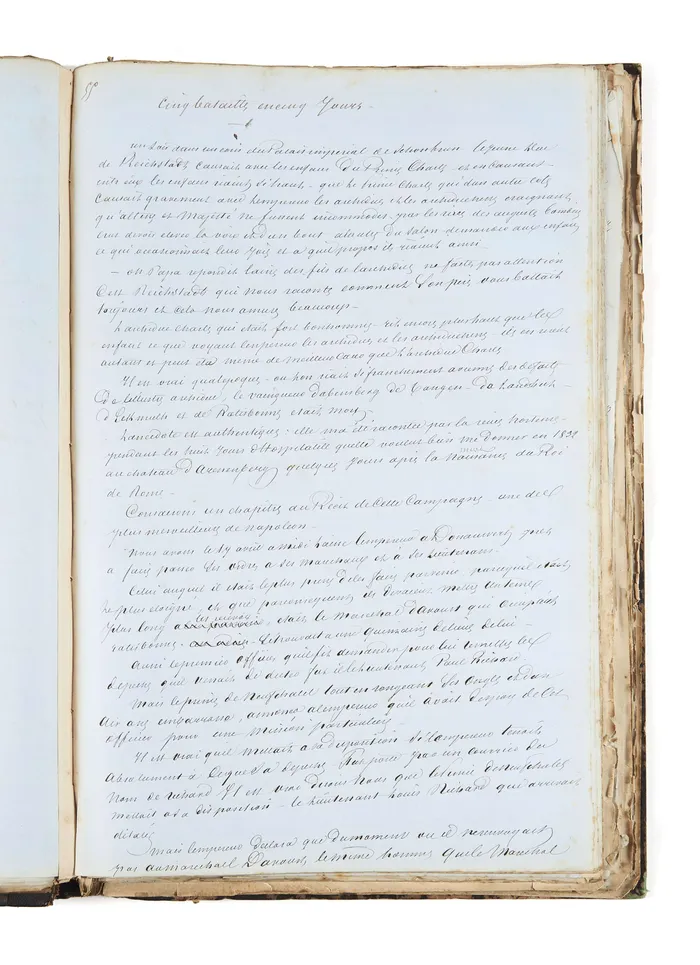 Cinq batailles en cinq Jours —
un soir dans un coin du Palais impérial de Schonbrun le jeune Duc
de Reichstadt causait avec les enfans du Prince Charles et en causant
entre eux les enfans riaient si haut — que le prince Charles qui d'un autre coté
causait gravement avec l'empereur les archiducs et les archiduchesses craignant
qu'altesses et Majesté ne fussent incommodés par les rires des augustes bambins
crut devoir elever la voix et d'un bout à l'autre du salon demander aux enfans
ce qui occasionnait leur joie et à quel propos ils riaient ainsi —
— oh Papa repondit l'ainé des fils de l'archiduc ne faites pas attention
C'est Reichstadt qui nous raconte comment son père vous battait
toujours et cela nous amuse beaucoup —
L'archiduc Charles qui était fort bonhomme rit encore plus haut que les
enfans ce que voyant l'empereur les archiducs et les archiduchesses ils en rirent
autant et peut être même de meilleur cœur que l'archiduc Charles
Il est vrai qu'à l'époque où l'on riait si franchement à Vienne des défaites
de l'illustre archiduc, le vainqueur d'Abensberg de Tangen — de Landshut —
d'Eckmulh et de Ratisbonne était mort
L'anecdote est authentique: elle m'a été racontée par la reine hortense
pendant les huit jours d'hospitalité qu'elle voulut bien me donner en 1832
au chateau d'Arenenberg quelques jours après la du Roi
de Rome —
Consacrons un chapitre au Récit de cette Campagne — une des
plus merveilleuses de napoleon —
Nous avons le 17 avril à midi laissé l'empereur à Donauwert prêt
à faire passer ses ordres à ses marechaux et à ses lieutenans.
Celui auquel il était le plus pressé de les faire parvenir parcequ'il était
le plus eloigné, et que par conséquent il devait mettre un temps
plus long à les recevoir était le Marechal Davoust qui occupait
Ratisbonne — Et se trouvait à une quinzaine de lieues de lui —
Aussi le premier officier qu'il fit demander pour lui remettre les
depeches qu'il venait de dicter fut-il le lieutenant Paul Richard
Mais le prince de Neufchatel tout en rongeant ses ongles et d'un
air assez embarrassé, annonça à l'empereur qu'il avait disposé de cet
officier pour une mission particulière
Il est vrai qu'il mettait à sa disposition si l'empereur tenait
absolument à ce que sa depeche fut portée par un courrier du
Nom de richard Il est vrai disons nous que le prince de neufchatel
mettait à sa disposition — le lieutenant Louis Richard qui arrivait
mais l'empereur declara que du moment où il ne renvoyait
pas au marechal Davoust le même homme que le Marechal